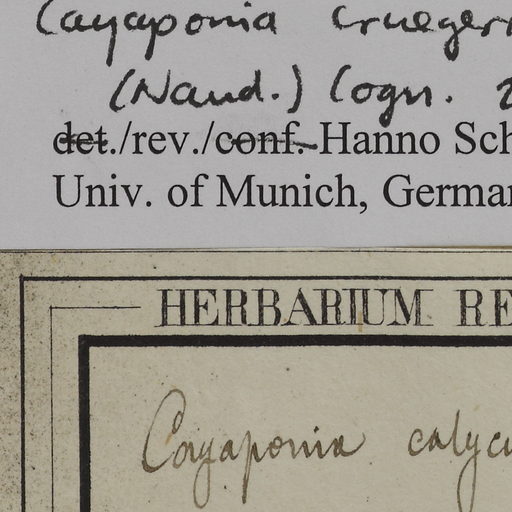 Cayaponia cruegeri
(Naud.) Cogn. 2
det./rev./conf. Hanno Sch
Univ. of Munich, German
HERBARIUM RE
Cayaponia calycu